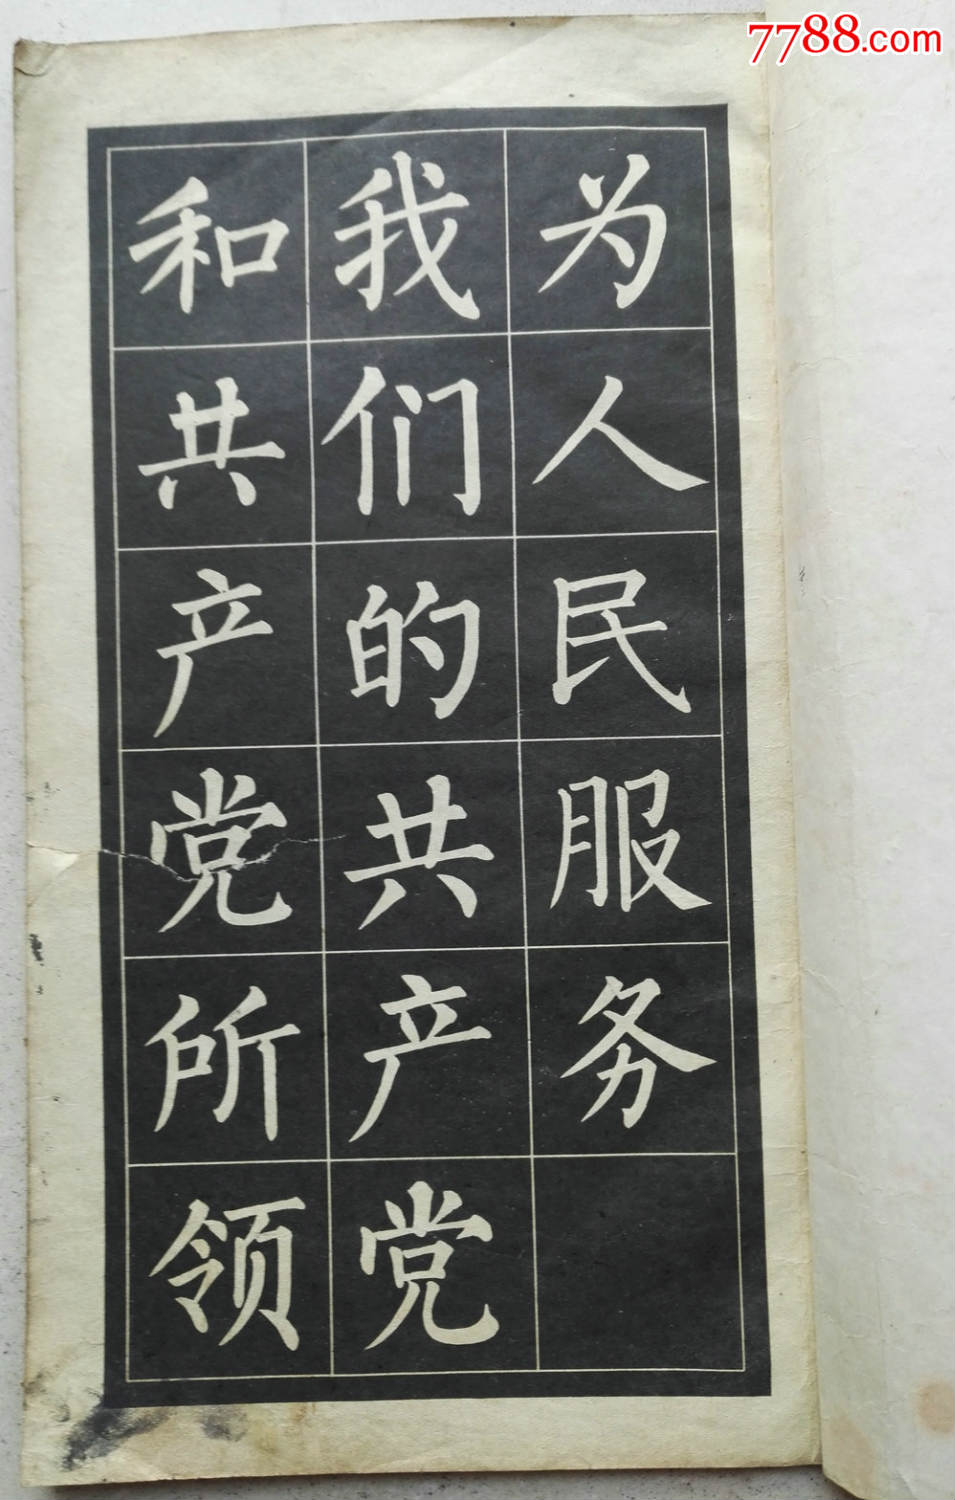 7788.com
为人民服务
我们的共产党
和共产党所领